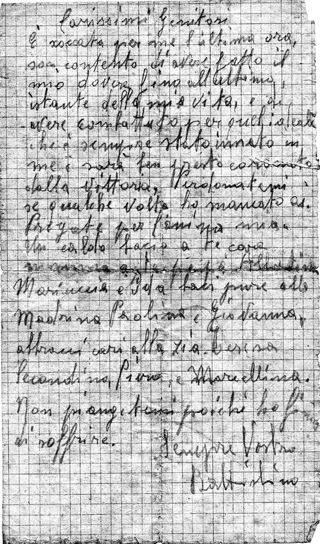 Carissimi Genitori
È toccata per me l'ultima ora,
son contento di avere fatto il
mio dovere fino all'ultimo
istante della mia vita, e di
avere combattuto per
che è sempre stato innato in
me e sarà ben presto coronato
dalla vittoria, Perdonatemi
se qualche volta ho mancato di.
Pregate per l'anima mia.
Un caldo bacio a te cara
mamma
Mariuccia e baci pure alla
Madrina Paolina e Giovanna,
abbracci cari alla zia Teresa
Secondino, Piera, e Marcellina.
Non piangetemi poiché ho
di soffrire.
Sempre Vostro
Battistino